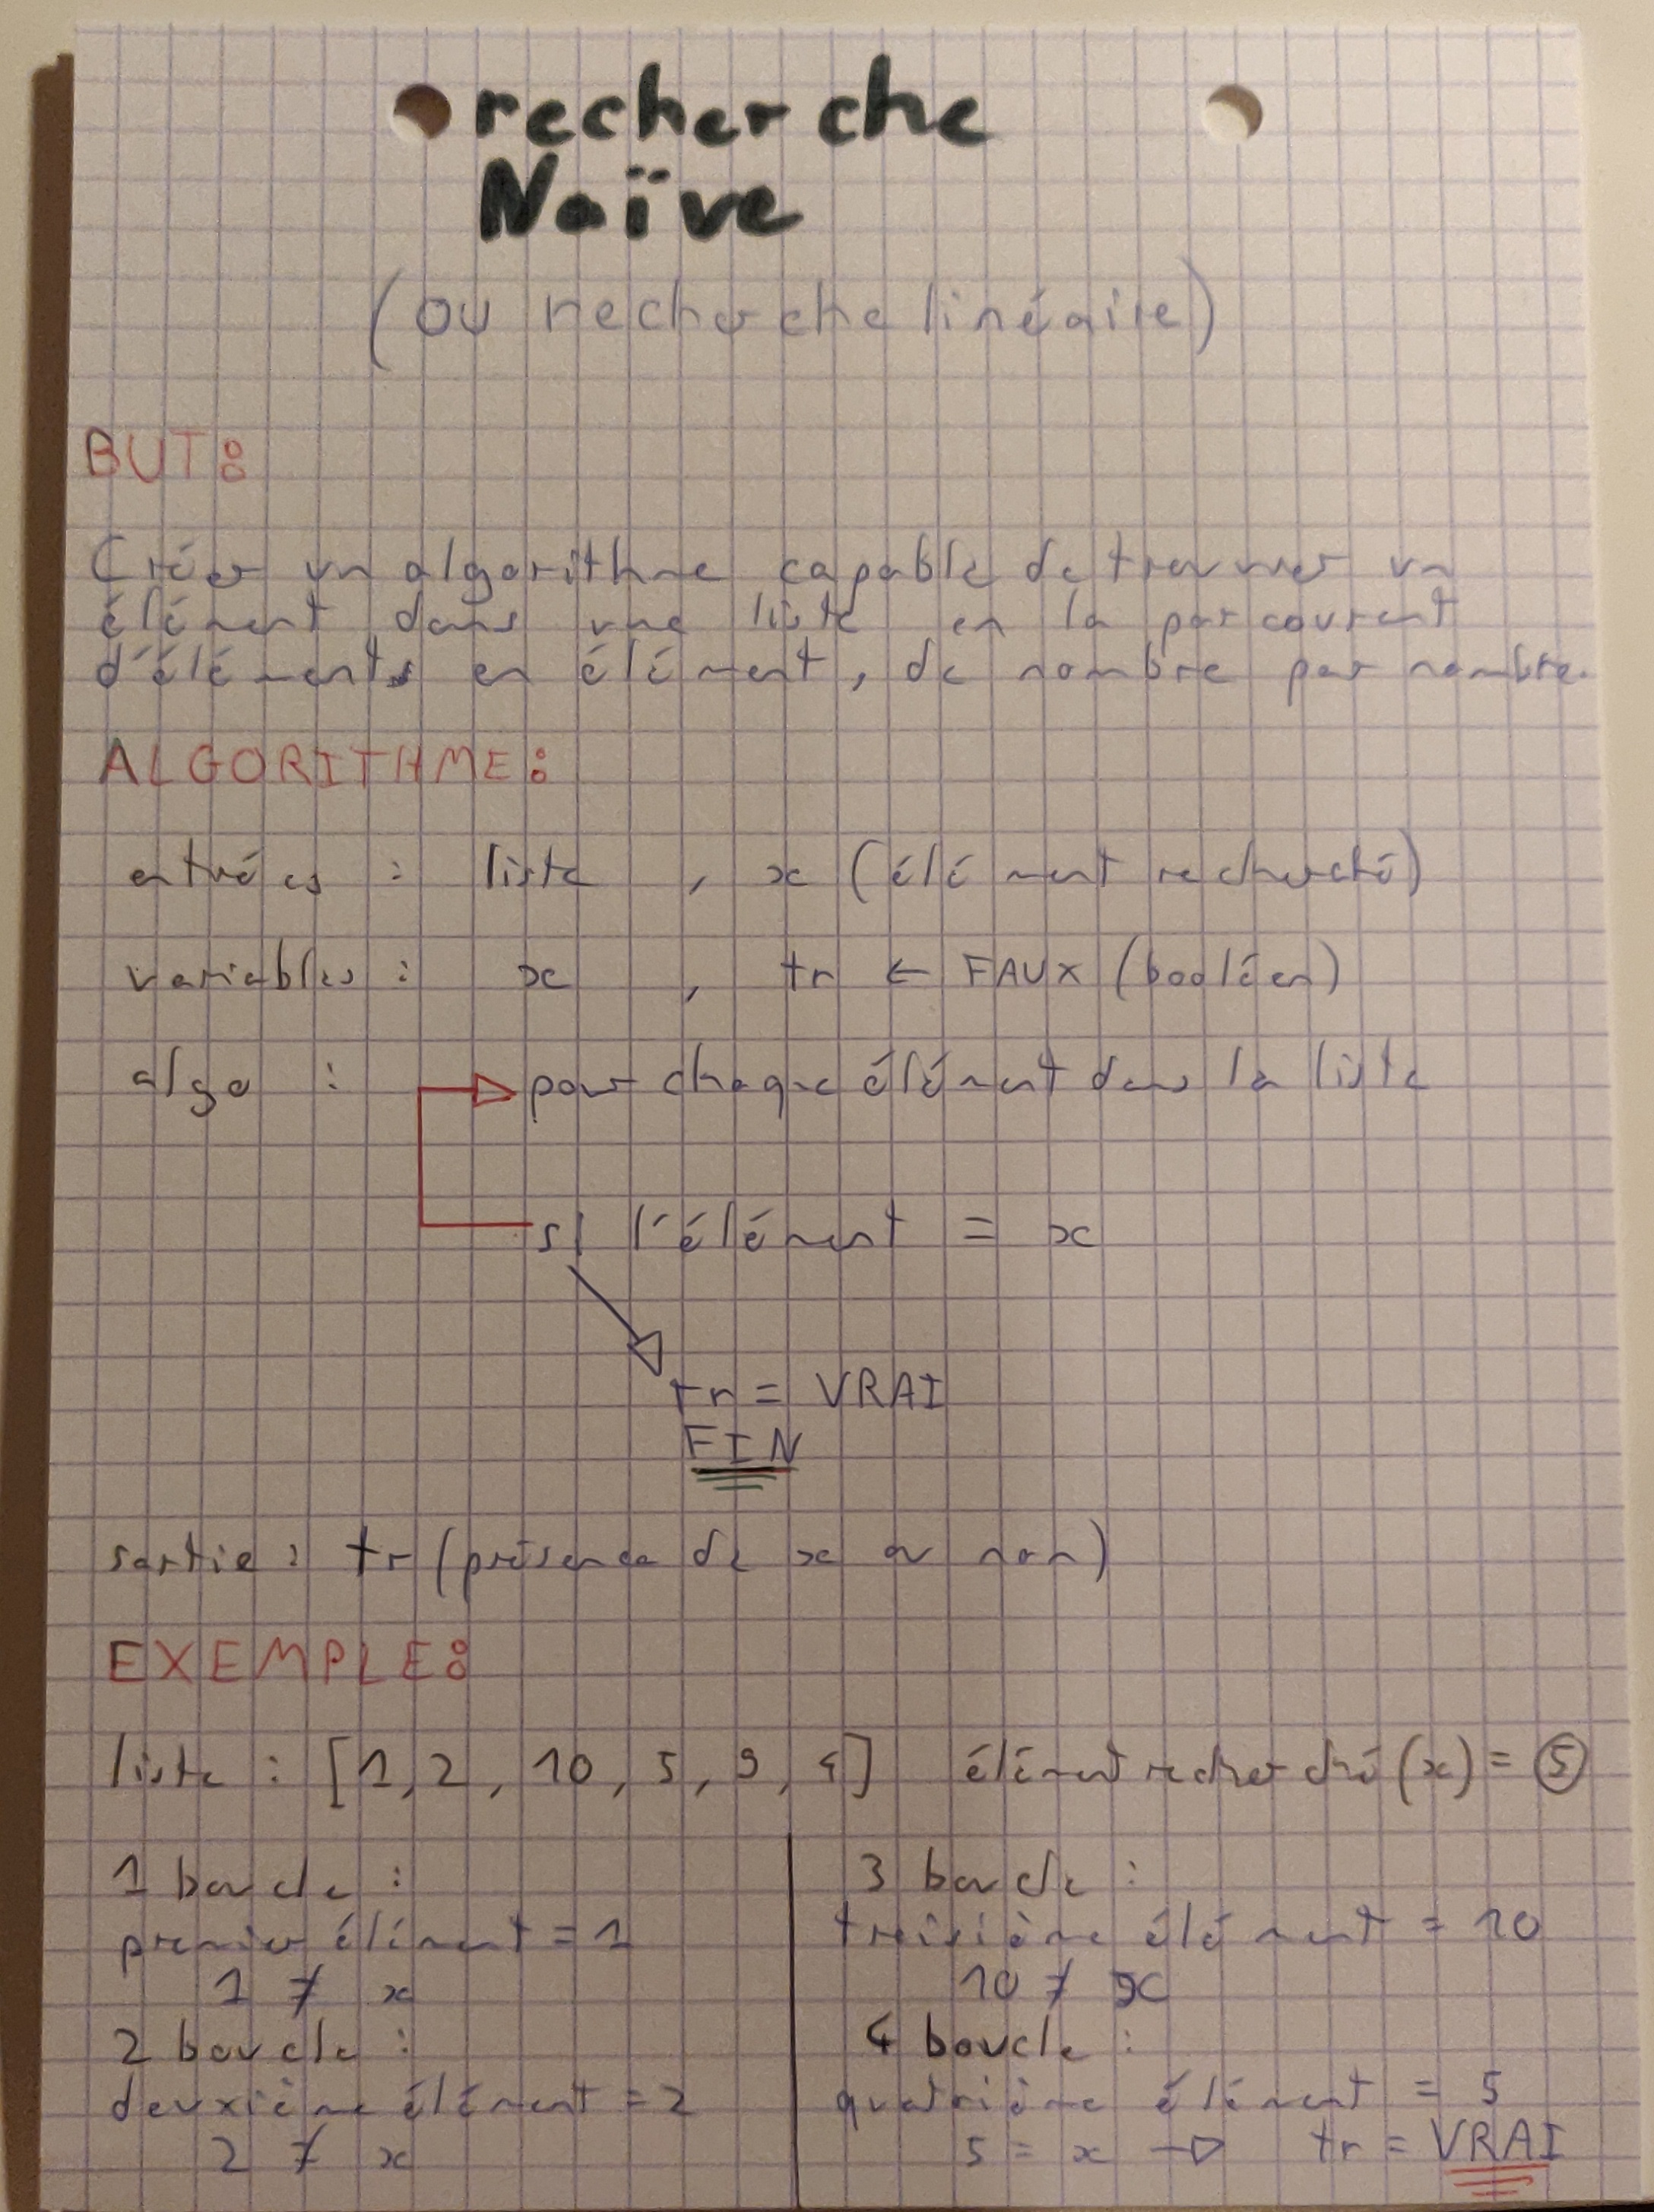 recherche
Naïve
(ou recherche linéaire)
BUT:
Créer un algorithme capable de trouver un
élément dans une liste en la parcourent
d'éléments en élément, de nombre par nombre.
ALGORITHME:
entrées : liste , x (élément recherché)
variables : x , tr ← FAUX (booléen)
algo : pour chaque élément dans la liste
si l'élément = x
tr = VRAI
FIN
sortie : tr (présence de x ou non)
EXEMPLE:
liste : [1, 2, 10, 5, 9, 4] élément recherché (x) = 5
1 boucle :
premier élément = 1
1 ≠ x
2 boucle :
deuxième élément = 2
2 ≠ x
3 boucle :
troisième élément = 10
10 ≠ x
4 boucle :
quatrième élément = 5
5 = x → tr = VRAI